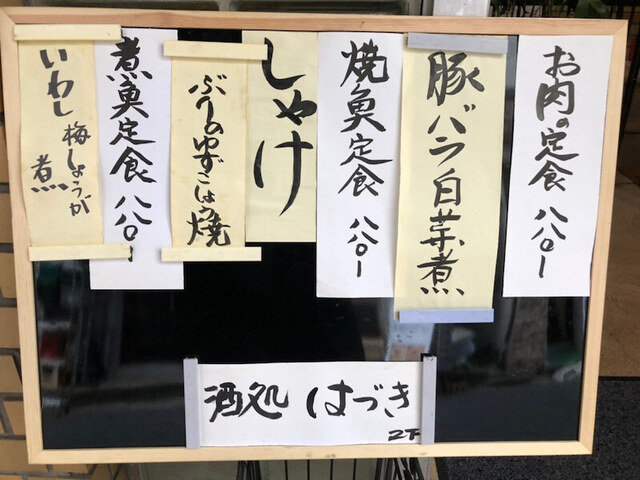 お肉の定食 八八〇ー
豚バラ白菜煮
焼魚定食 八八〇ー
しゃけ
ぶりのゆずこしょう焼
煮魚定食 八八〇ー
いわし梅しょうが煮
酒処 はづき
2F